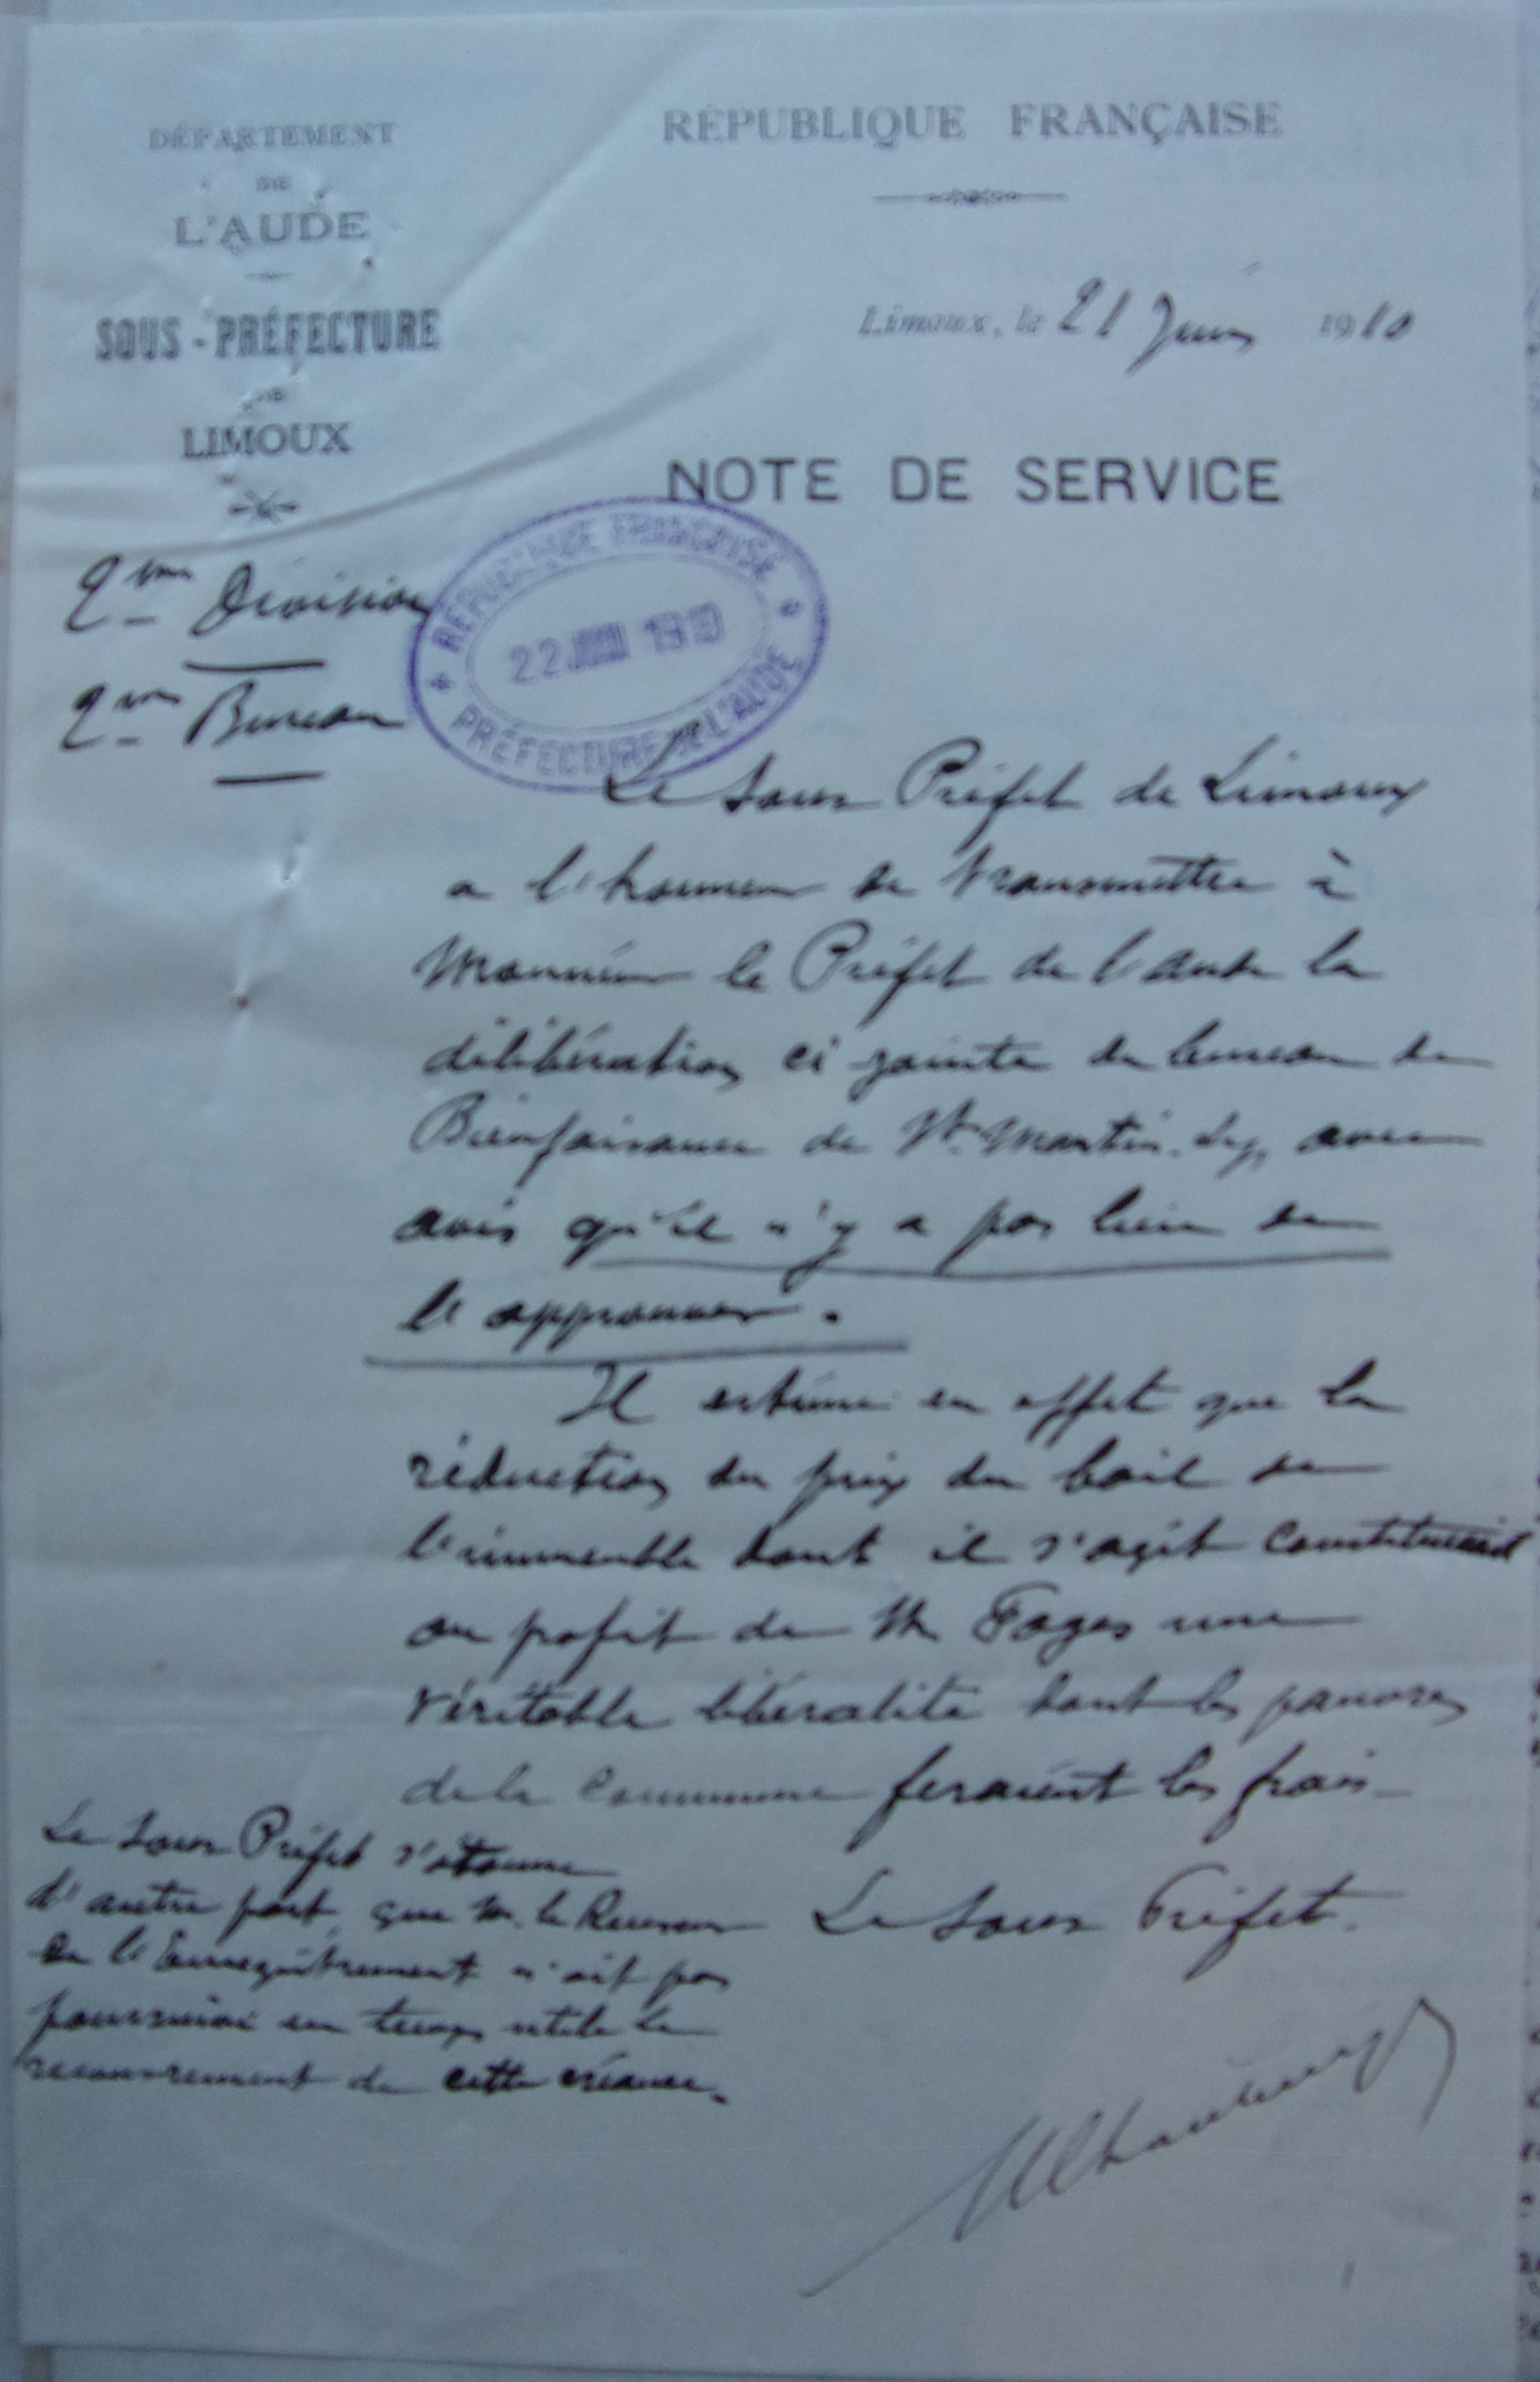 DÉPARTEMENT
DE
L'AUDE
SOUS-PRÉFECTURE
DE
LIMOUX
RÉPUBLIQUE FRANÇAISE
Limoux, le 21 Juin 1910
NOTE DE SERVICE
2me Division
2me Bureau
RÉPUBLIQUE FRANÇAISE
22 JUIN 1910
PRÉFECTURE DE L'AUDE
Le Sous Préfet de Limoux
a l'honneur de transmettre à
Monsieur le Préfet de l'Aude la
délibération ci jointe du bureau de
Bienfaisance de St Martin-Lys, avec
avis qu'il n'y a pas lieu de
l' approuver.
Il estime en effet que la
réduction du prix du bail de
l'immeuble dont il s'agit constituerait
au profit de M Fages une
véritable libéralité dont les pauvres
de la Commune feraient les frais
Le Sous Préfet.
Le Sous Préfet s'étonne
d'autre part, que M. le Receveur
de l'Enregistrement n'ait pas
poursuivi en temps utile le
recouvrement de cette créance.